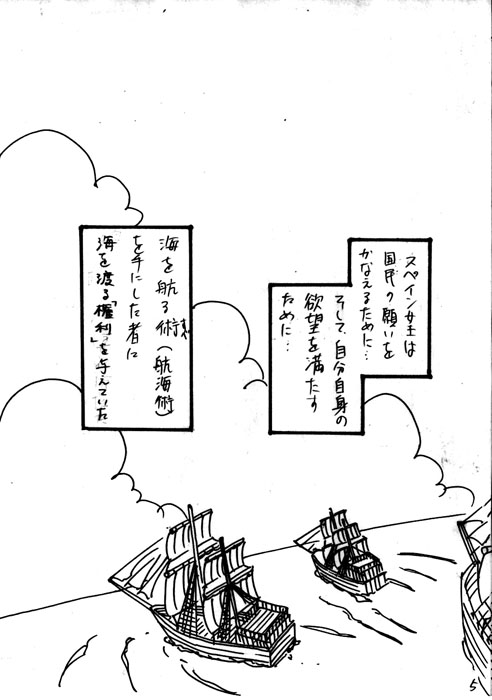 スペイン女王は
国民の願いを
かなえるために…
そして、自分自身の
欲望を満たす
ために…
海を航る術（航海術）
を手にした者に
海を渡る「権利」を与えていた
5